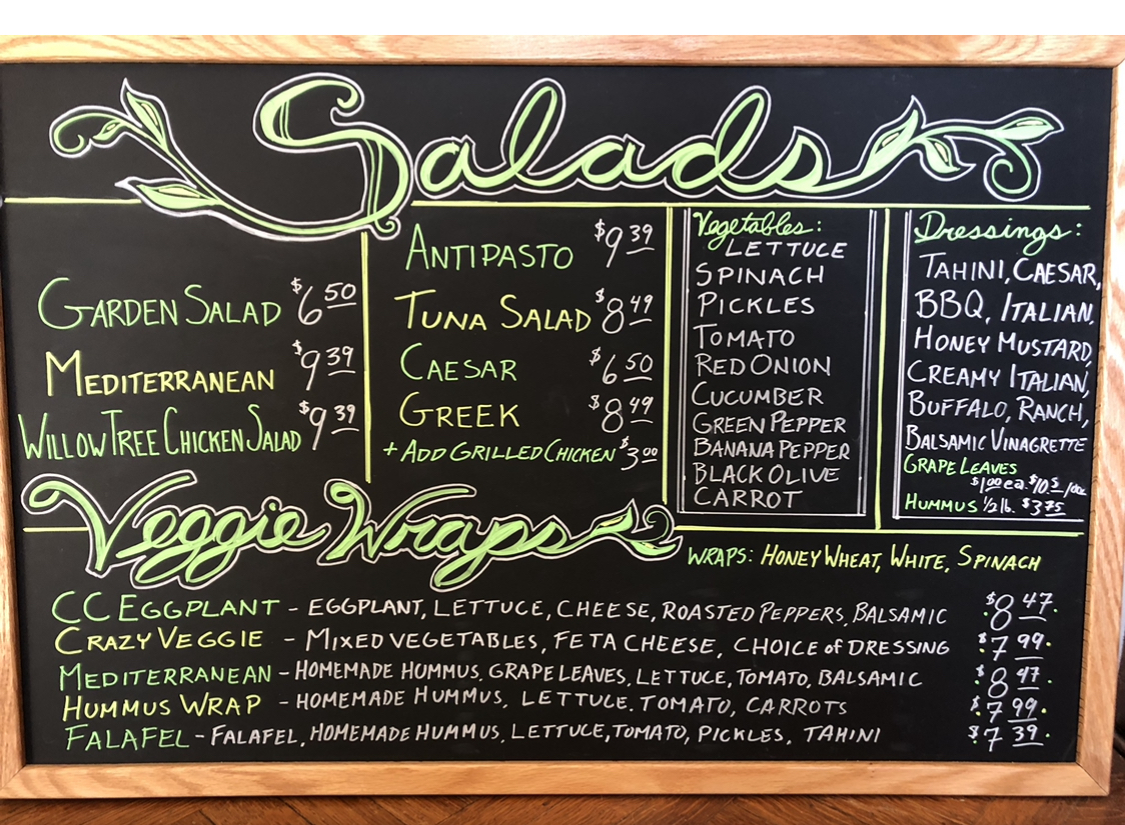 Salads
GARDEN SALAD $6.50
MEDITERRANEAN $9.39
WILLOW TREE CHICKEN SALAD $9.39
ANTIPASTO $9.39
TUNA SALAD $8.49
CAESAR $6.50
GREEK $8.49
+ ADD GRILLED CHICKEN $3.00
Vegetables:
LETTUCE
SPINACH
PICKLES
TOMATO
RED ONION
CUCUMBER
GREEN PEPPER
BANANA PEPPER
BLACK OLIVE
CARROT
Dressings:
TAHINI, CAESAR,
BBQ, ITALIAN,
HONEY MUSTARD,
CREAMY ITALIAN,
BUFFALO, RANCH,
BALSAMIC VINAGRETTE
GRAPE LEAVES
$1.00 ea.
HUMMUS 1/2 lb. $3.75
Veggie Wraps
WRAPS: HONEY WHEAT, WHITE, SPINACH
CC EGGPLANT - EGGPLANT, LETTUCE, CHEESE, ROASTED PEPPERS, BALSAMIC $8.47
CRAZY VEGGIE - MIXED VEGETABLES, FETA CHEESE, CHOICE of DRESSING $7.99
MEDITERRANEAN - HOMEMADE HUMMUS, GRAPE LEAVES, LETTUCE, TOMATO, BALSAMIC $8.47
HUMMUS WRAP - HOMEMADE HUMMUS, LETTUCE, TOMATO, CARROTS $7.99
FALAFEL - FALAFEL, HOMEMADE HUMMUS, LETTUCE, TOMATO, PICKLES, TAHINI $7.39